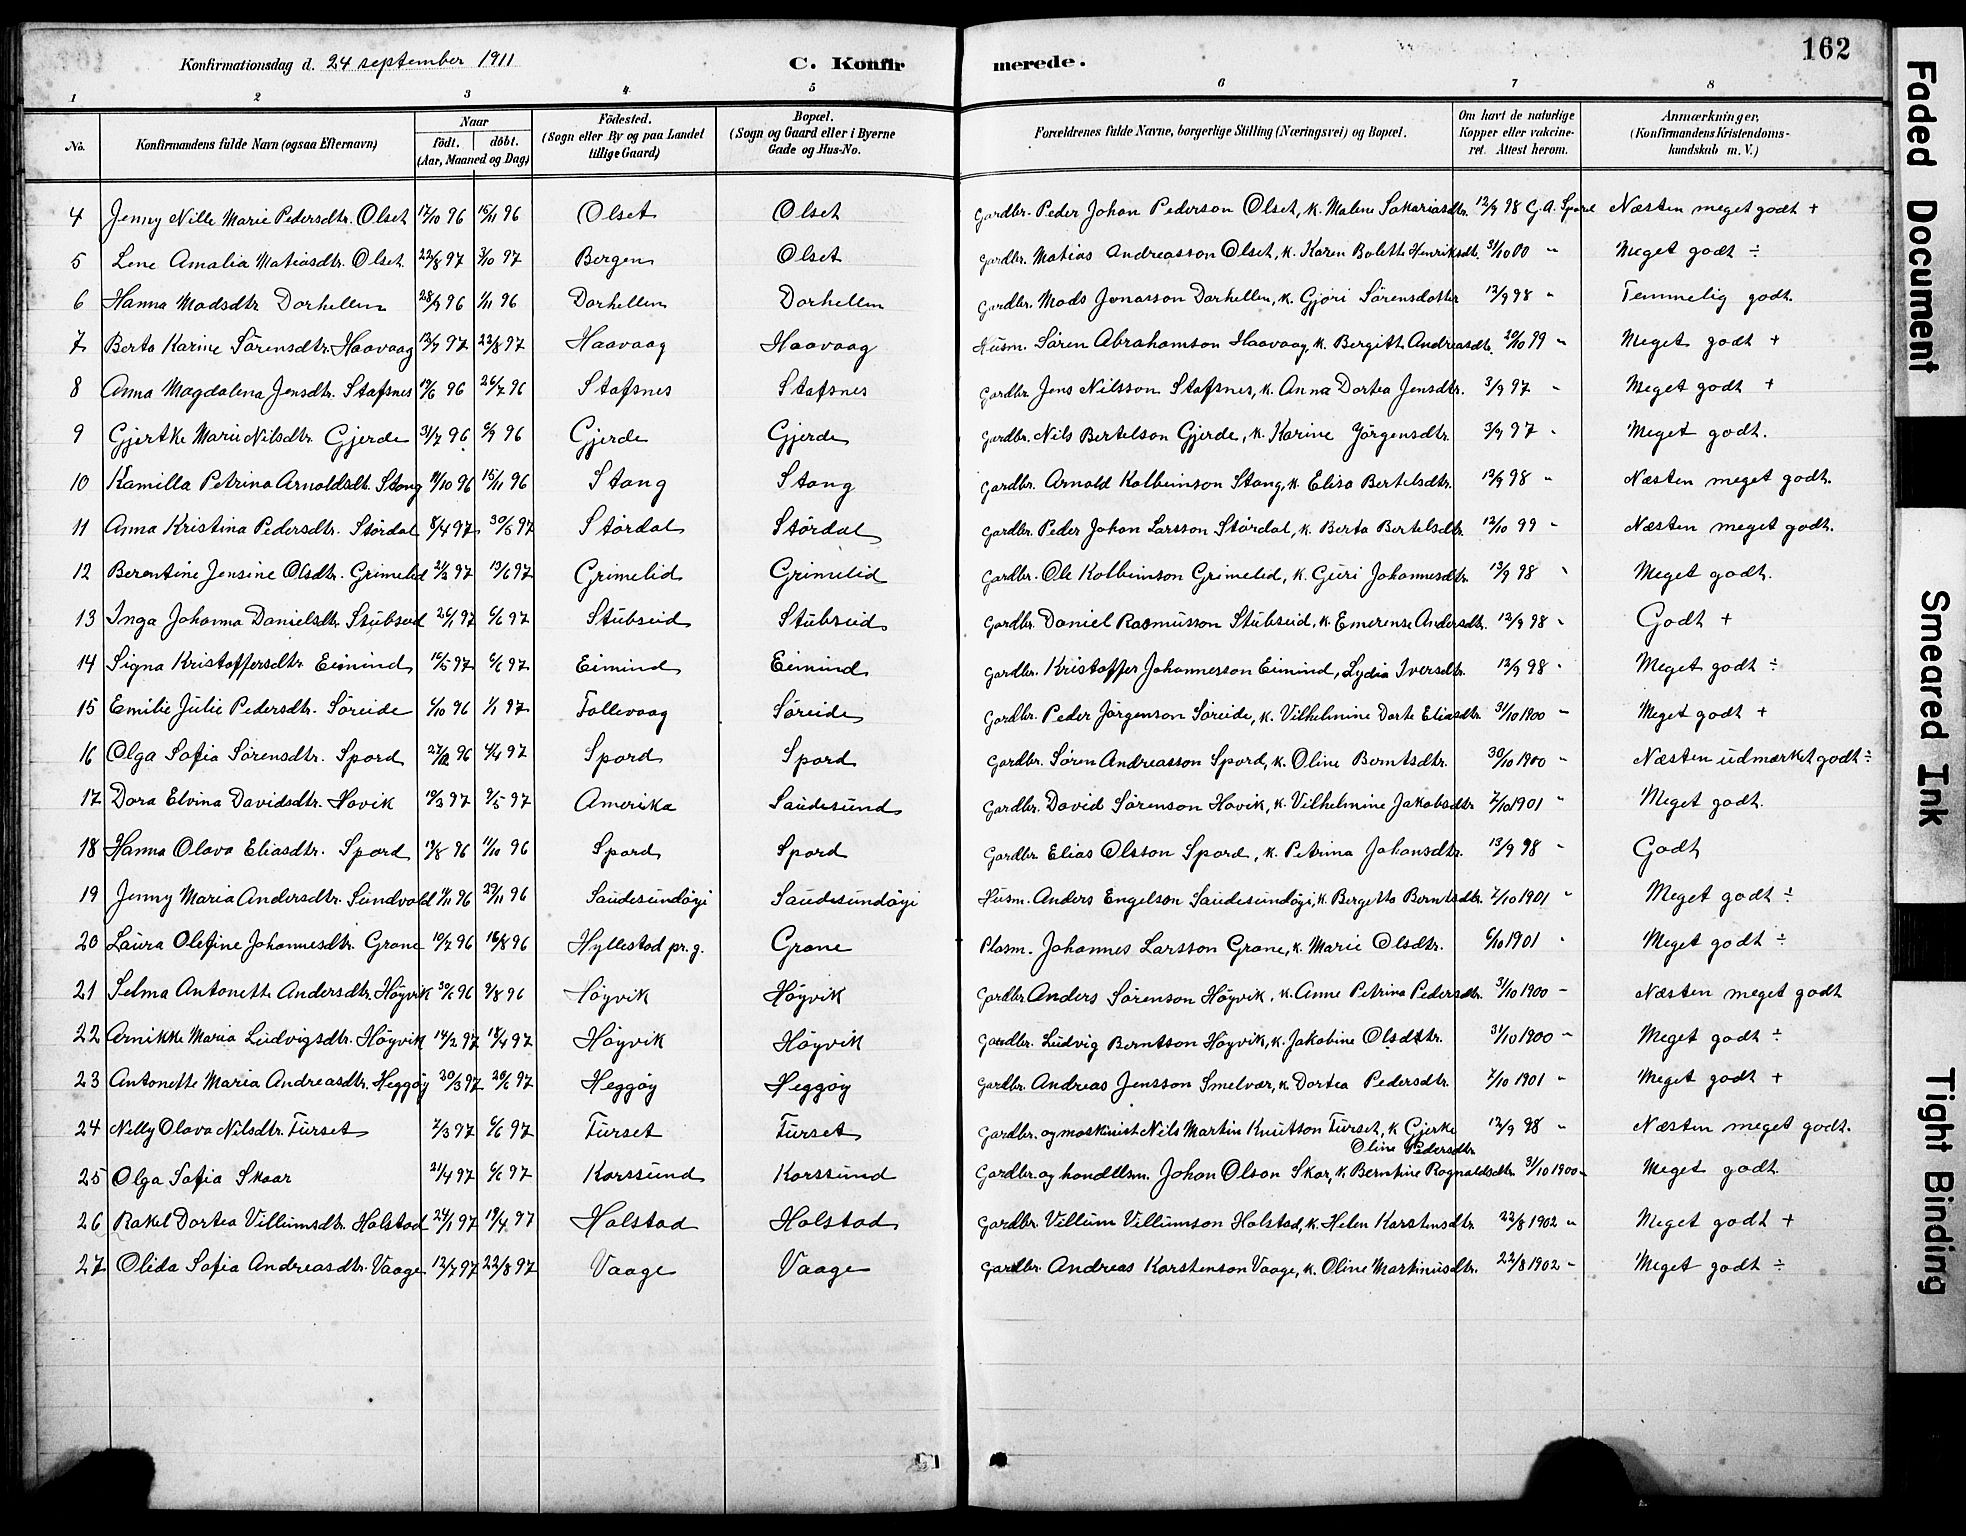 162
Konfirmationsdag d. 24 september 1911 C. Konfir merede.
1 2 3 4 5 6 7 8
No. Konfirmandens fulde Navn (ogsaa Efternavn) Naar födt. döbt. (Aar, Maaned og Dag) Födested. (Sogn eller By og paa Landet tillige Gaard) Bopæl. (Sogn og Gaard eller i Byerne Gade og Hus-No. Forældrenes fulde Navne, borgerlige Stilling (Næringsvei) og Bopæl. Om havt de naturlige Kopper eller vakcineret. Attest herom. Anmærkninger, (Konfirmandens Kristendomskundskab m. V.)
4 Jenny Nille Marie Pedersdtr. Olset 17/10 96 15/11 96 Olset Olset Gardbr. Peder Johan Pederson Olset, k. Malene Sakariasdtr. 12/9 98 G.A. Næsten meget godt +
5 Lene Amalia Matiasdtr. Olset 22/8 97 3/10 97 Bergen Olset Gardbr. Matias Andreasson Olset, k. Karen Bolette Henriksdt. 31/10 00 " Meget godt ÷
6 Hanna Madsdtr Dorhellen 28/9 96 1/11 96 Dorhellen Dorhellen Gardbr. Mads Jonasson Dorhellen, k. Gjöri Sörensdotter 12/9 98 " Temmelig godt.
7 Berta Karine Sörensdtr. Haavaag 12/7 97 22/8 97 Haavaag Haavaag Husm. Sören Abrahamson Haavaag, k. Bergitte Andreasdtr. 20/10 99 " Meget godt +
8 Anna Magdalena Jensdtr. Stafsnes 19/6 96 26/7 96 Stafsnes Stafsnes Gardbr. Jens Nilsson Stafsnes, k. Anna Dortea Jensdtr. 3/9 97 " Meget godt +
9 Gjertke Marie Nilsdtr. Gjerde 31/7 96 6/9 96 Gjerde Gjerde Gardbr. Nils Bertelson Gjerde, k. Karine Jörgensdtr. 3/9 97 " Meget godt.
10 Kamilla Petrina Arnoldsdt. Stong 11/10 96 15/11 96 Stong Stong Gardbr. Arnold Kolbeinson Stong, k. Elisa Bertelsdtr. 12/9 98 " Næsten meget godt.
11 Anna Kristina Pedersdtr. Stördal 8/4 97 30/5 97 Stördal Stördal Gardbr. Peder Johan Larsson Stördal, k. Berta Bertelsdtr. 12/10 99 " Næsten meget godt.
12 Berentine Jensine Olsdtr. Grimelid 21/2 97 13/6 97 Grimelid Grimelid Gardbr. Ole Kolbeinson Grimelid, k. Guri Johannesdtr 13/9 98 " Meget godt.
13 Inga Johanna Danielsdtr. Stubseid 26/1 97 6/6 97 Stubseid Stubseid Gardbr. Daniel Rasmusson Stubseid, k. Emerense Andersdtr. 12/9 98 " Godt +
14 Signa Kristoffersdtr. Eimind 16/5 97 6/6 97 Eimind Eimind Gardbr. Kristoffer Johannesson Eimind, Lydia Iversdtr. 12/9 98 " Meget godt ÷
15 Emilie Julie Pedersdtr. Söreide 6/10 96 1/1 97 Follevaag Söreide Gardbr. Peder Jörgenson Söreide, k. Vilhelmine Dorte Eliasdtr 31/10 1900 " Meget godt +
16 Olga Sofia Sörensdtr. Spord 27/12 96 4/4 97 Spord Spord Gardbr. Sören Andreasson Spord, k. Oline Berntsdtr. 30/10 1900 " Næsten udmærket godt ÷
17 Dora Elvina Davidsdtr. Hovik 19/3 97 9/5 97 Amerika Saudesund Gardbr. David Sörenson Hovik, k. Vilhelmine Jakobsdtr 7/10 1901 " Meget godt.
18 Hanna Olava Eliasdtr. Spord 19/8 96 11/10 96 Spord Spord Gardbr. Elias Olsson Spord, k. Petrina Johansdtr. 13/9 98 " Godt
19 Jenny Maria Andersdtr. Sundvold 11/11 96 29/11 96 Saudesundöyi Saudesundöyi Husm. Anders Engelson Saudesundöyi, k. Bergitta Berntsdtr. 7/10 1901 " Meget godt ÷
20 Laura Olefine Johannesdtr. Grane 10/7 96 16/8 96 Hyllestad pr. g. Grane Plasm. Johannes Larsson Grane, k. Marie Olsdtr. 6/10 1901 " Meget godt ÷
21 Selma Antonette Andersdtr. Höyvik 30/6 96 9/8 96 Höyvik Höyvik Gardbr. Anders Sörenson Höyvik, k. Anne Petrina Pedersdtr. 31/10 1900 " Næsten meget godt
22 Arnikke Maria Ludvigsdtr. Höyvik 14/2 97 18/4 97 Höyvik Höyvik Gardbr. Ludvig Berntson Höyvik, k. Jakobine Olsdttr. 31/10 1900 " Meget godt ÷
23 Antonette Maria Andreasdtr. Heggöy 20/3 97 20/6 97 Heggöy Heggöy Gardbr. Andreas Jensson Smelvær, k. Dortea Pedersdtr. 7/10 1901 " Meget godt +
24 Nelly Olava Nilsdtr. Furset 7/3 97 6/6 97 Furset Furset Gardbr. og maskinist Nils Martin Knutson Furset, k Gjerke Oline Pedersdtr 12/9 98 " Næsten meget godt.
25 Olga Sofia Skaar 21/4 97 6/6 97 Korssund Korssund Gardbr. og handelsm. Johan Olson Skar, k. Berntine Rognaldsdtr 31/10 1900 " Meget godt
26 Rakel Dortea Villumsdtr. Holstad 24/1 97 19/4 97 Holstad Holstad Gardbr. Villum Villumson Holstad, k. Helen Karstensdtr 22/8 1902 " Meget godt +
27 Olida Sofia Andreasdtr. Vaage 12/7 97 22/8 97 Vaage Vaage Gardbr. Andreas Karstenson Vaage, k. Oline Martinusdtr. 22/8 1902 " Meget godt ÷
Faded Document
Smeared Ink
Tight Binding